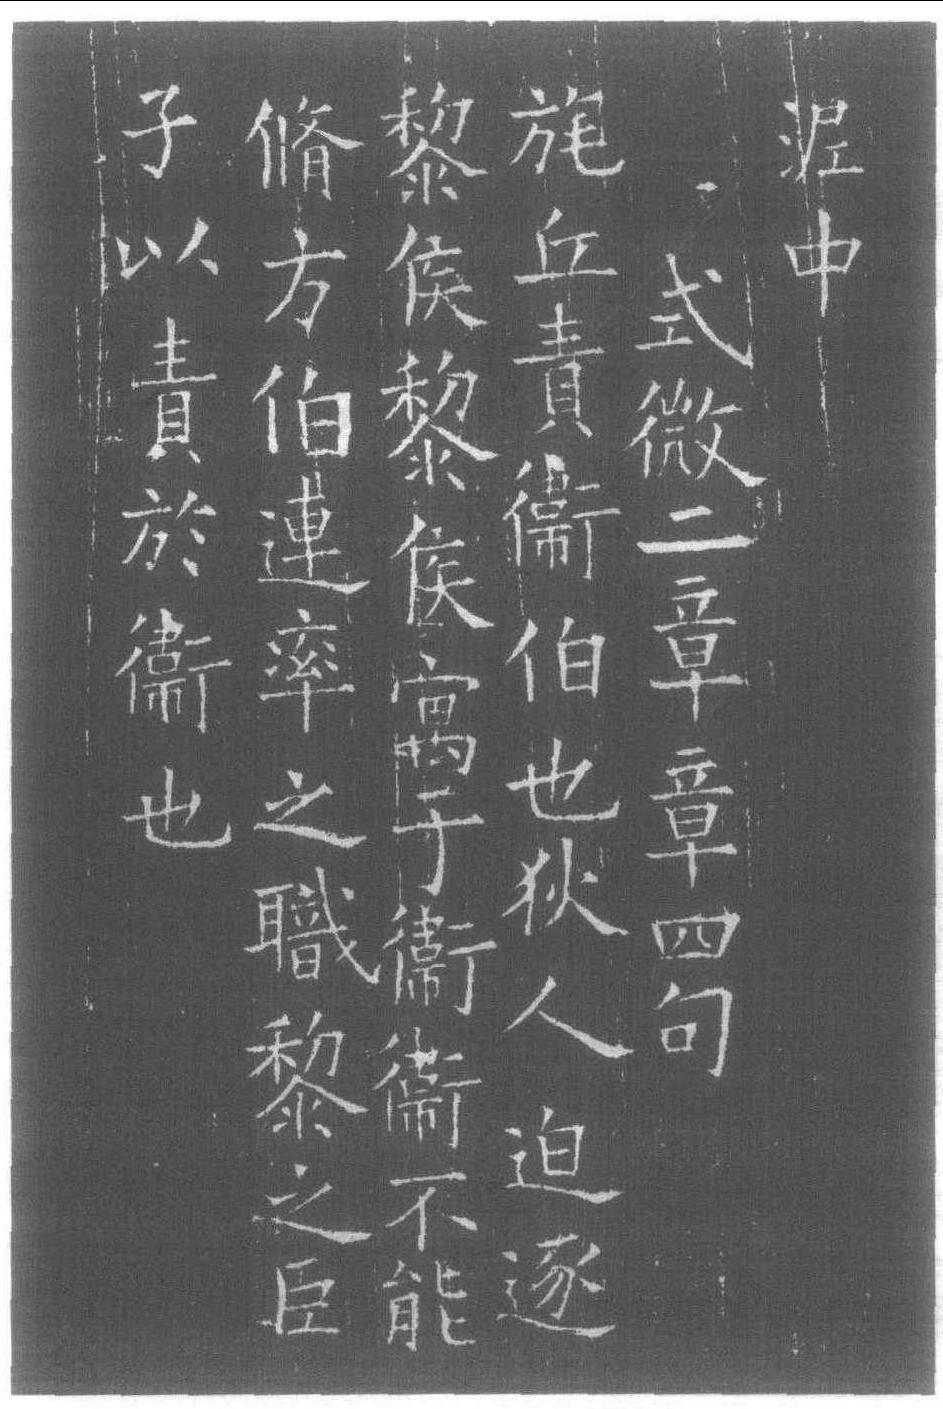 泥中
式微二章章四句
旄丘責衞伯也狄人迫逐
黎侯黎侯寓于衞衞不能
脩方伯連率之職黎之臣
子以責於衞也